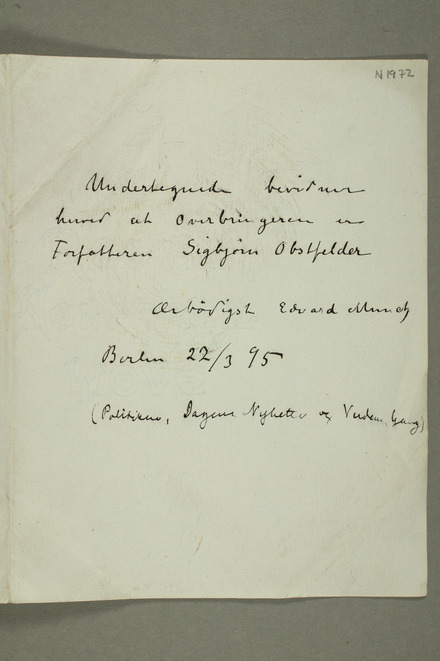 N 1972
Undertegnede bevidner
herved at Overbringeren er
Forfatteren Sigbjörn Obstfelder
Ærbödigst Edvard Munch
Berlin 22/3 95
(Politiken, Dagens Nyheter og Verdens Gang)